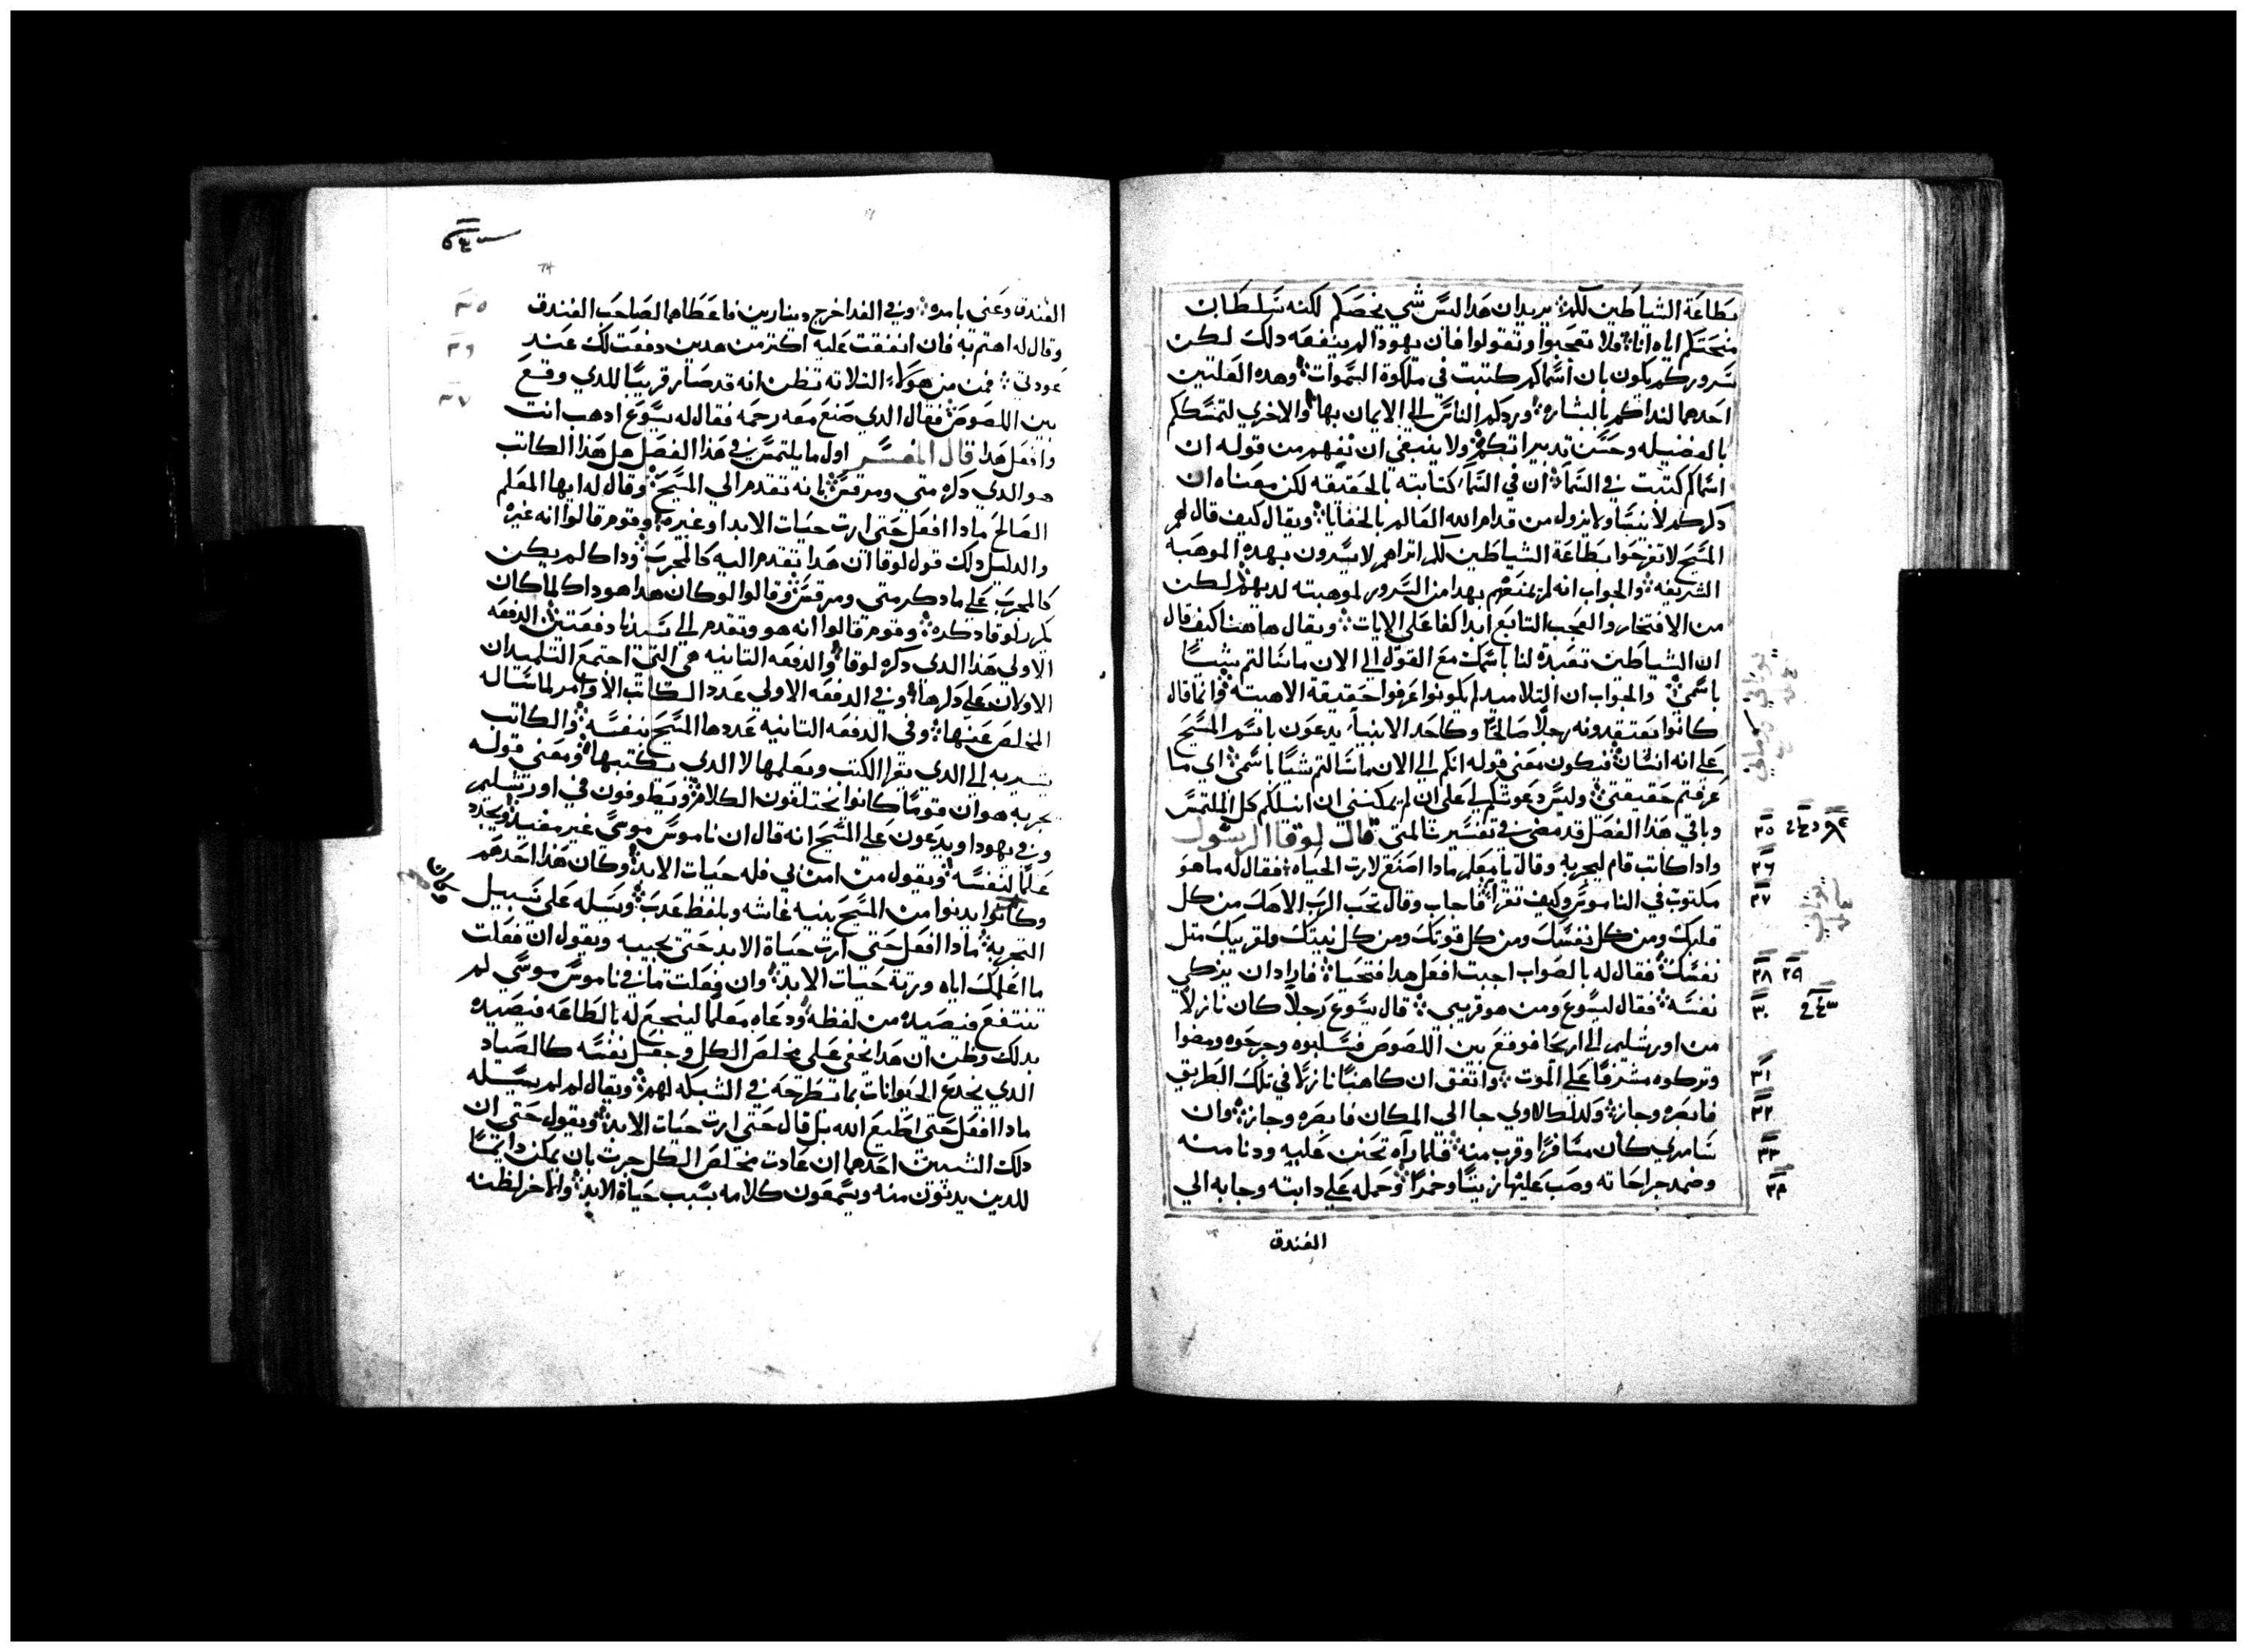 بطاعة الشياطين لكم يريد ان هدا ليس شي يخصكم لكنه سلطان
منحتكم اياه انا ولا تعجبوا وتقولوا فان يهودا لم ينفعه دلك لكن
سروركم يكون بان اسماكم كتبت في ملكوة السموات وهده العلتين
احدهما لنداكم بالبشاره وردكم الناس الي الايمان بها والاخري لتمسككم
بالفضيله وحسن تدبيراتكم ولا ينبغي ان نفهم من قوله ان
اسماكم كتبت في السما ان في السما كتابته بالحقيقه لكن معناه ان
دكركم لا ينسا ولا يزول من قدام الله العالم بالخفايا ويقال كيف قال لهم
المسيح لا تفرحوا بطاعة الشياطين لكم اتراهم لا يسرون بهده الموهبه
الشريفه والجواب انه لم يمنعهم بهدا من السرور لموهبته لديهم لكن
من الافتخار والعجب التابع ابدا كفا علي الايات ويقال هاهنا كيف قال
ان الشياطين تعبدة لنا باسمك مع القول الي الان ما سالتم شيئًا
باسمي والجواب ان التلاميد لم يكونوا عرفوا حقيقة الاهيته وانما قال
كانوا يعتقدونه رجلًا صالحًا وكاحد الانبيا يدعون باسم المسيح
علي انه انسان فيكون معني قوله انكم الي الان ما سالتم شيًا باسمي اي ما
عرفتم حقيقتي وليس دعوتكم لي علي ان لم يمكنني ان انيلكم كل الملتمس
وباقي هدا الفصل قد مضي في تفسيرنا لمتي قال لوقا الرسول
وادا كاتب قام ليجربه وقال يا معلم مادا اصنع لارت الحياه فقال له ما هو
مكتوب في الناموس وكيف تقرا فاجاب وقال تحب الرب الاهك من كل
قلبك ومن كل نفسك ومن كل قوتك ومن كل نيتك ولقريبك متل
نفسك فقال له بالصواب اجبت افعل هدا فتحيا فاراد ان يزكي
نفسه فقال ليسوع ومن هو قريبي قال يسوع رجلًا كان نازلًا
من اورشليم الي اريحا فوقع بين اللصوص فسلبوه وجرحوه ومضوا
وتركوه مشرفًا علي الموت واتفق ان كاهنًا نازلًا في تلك الطريق
فابصره وجاز وكدلك لاوي جا الي المكان فابصره وجاز وان
سامري كان مسافرًا وقرب منه فلما رآه تحنن عليه ودنا منه
وضمد جراحاته وصب عليها زيتًا وخمرًا وحمله علي دابته وجا به الي
الفندق
٢٥
٢٦
٢٧
٢٨ ٢٩
٣٠
٣١
٣٢
٣٣
٣٤
الفندق وعني بامره وفي الغد اخرج دينارين فاعطاهما لصاحب الفندق
وقال له اهتم به فان انفقت عليه اكتر من هدين دفعت لك عند
عودتي فمن من هولاء التلاته تظن انه قد صار قريبًا للدي وقع
بين اللصوص فقال الدي صنع معه رحمه فقال له يسوع ادهب انت
وافعل هدا قال المفسر اول ما يلتمس في هدا الفصل هل هدا الكاتب
هو الدي دكره متي ومرقس بانه تقدم الي المسيح وقال له ايها المعلم
الصالح مادا افعل حتي ارت حيات الابد او غيره وقوم قالوا انه غيره
والدليل دلك قول لوقا ان هدا تقدم اليه كالمجرب وداك لم يكن
كالمجرب علي ما دكر متي ومرقس وقالوا لو كان هدا هو داك لما كان
يكرر لوقا دكره وقوم قالوا انه هو وتقدم الي سيدنا دفعتين الدفعه
الاولي هدا الدي دكره لوقا والدفعه التانيه هي التي اجتمع التلميدان
الاولان علي دكرها وفي الدفعه الاولي عدد الكاتب الاوامر لما ساله
المخلص عنها وفي الدفعه التانيه عددها المسيح بنفسه والكاتب
يشير به الي الدي يقرا الكتب ويعلمها لا الدي يكتبها ومعني قوله
يجربه هو ان قومًا كانوا يختلقون الكلام ويطوفون في اورشليم
وفي يهودا ويدعون علي المسيح انه قال ان ناموس موسي غير مفيد ويجدد
علمًا لنفسه ويقول من امن بي فله حيات الابد وكان هدا احدهم
وكانوا يدنوا من المسيح بنيه غاشه وبلفظ عدب ويسله علي سبيل
التجربه مادا افعل حتي ارت حياة الابد حتي يجيبه ويقول ان فعلت
ما اعلمك اياه ورتة حيات الابد وان فعلت ما في ناموس موسي لم
تنتفع فيصيده من لفظه ودعاه معلمًا لينجع له بالطاعه فيصيده
بدلك وظن ان هدا يخفي علي مخلص الكل وجعل نفسه كالصياد
الدي يخدع الحيوانات بما تطرحه في الشبكه لهم ويقال لم لم يسله
مادا افعل حتي اطيع الله بل قال حتي ارت حيات الابد ويقول حتي ان
دلك لشيين احدهما ان عادت مخلص الكل جرت بان يمكن دايمًا
للدين يدنون منه ويسمعون كلامه بسبب حياة الابد والاخر لظنه
٣٥
٣٦
٣٧